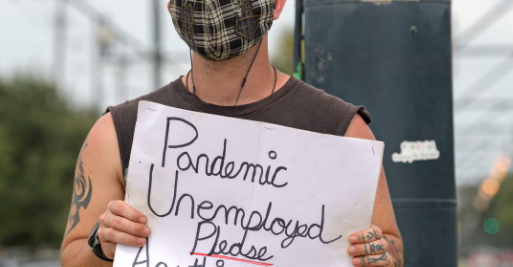 Pandemic
Unemployed
Please